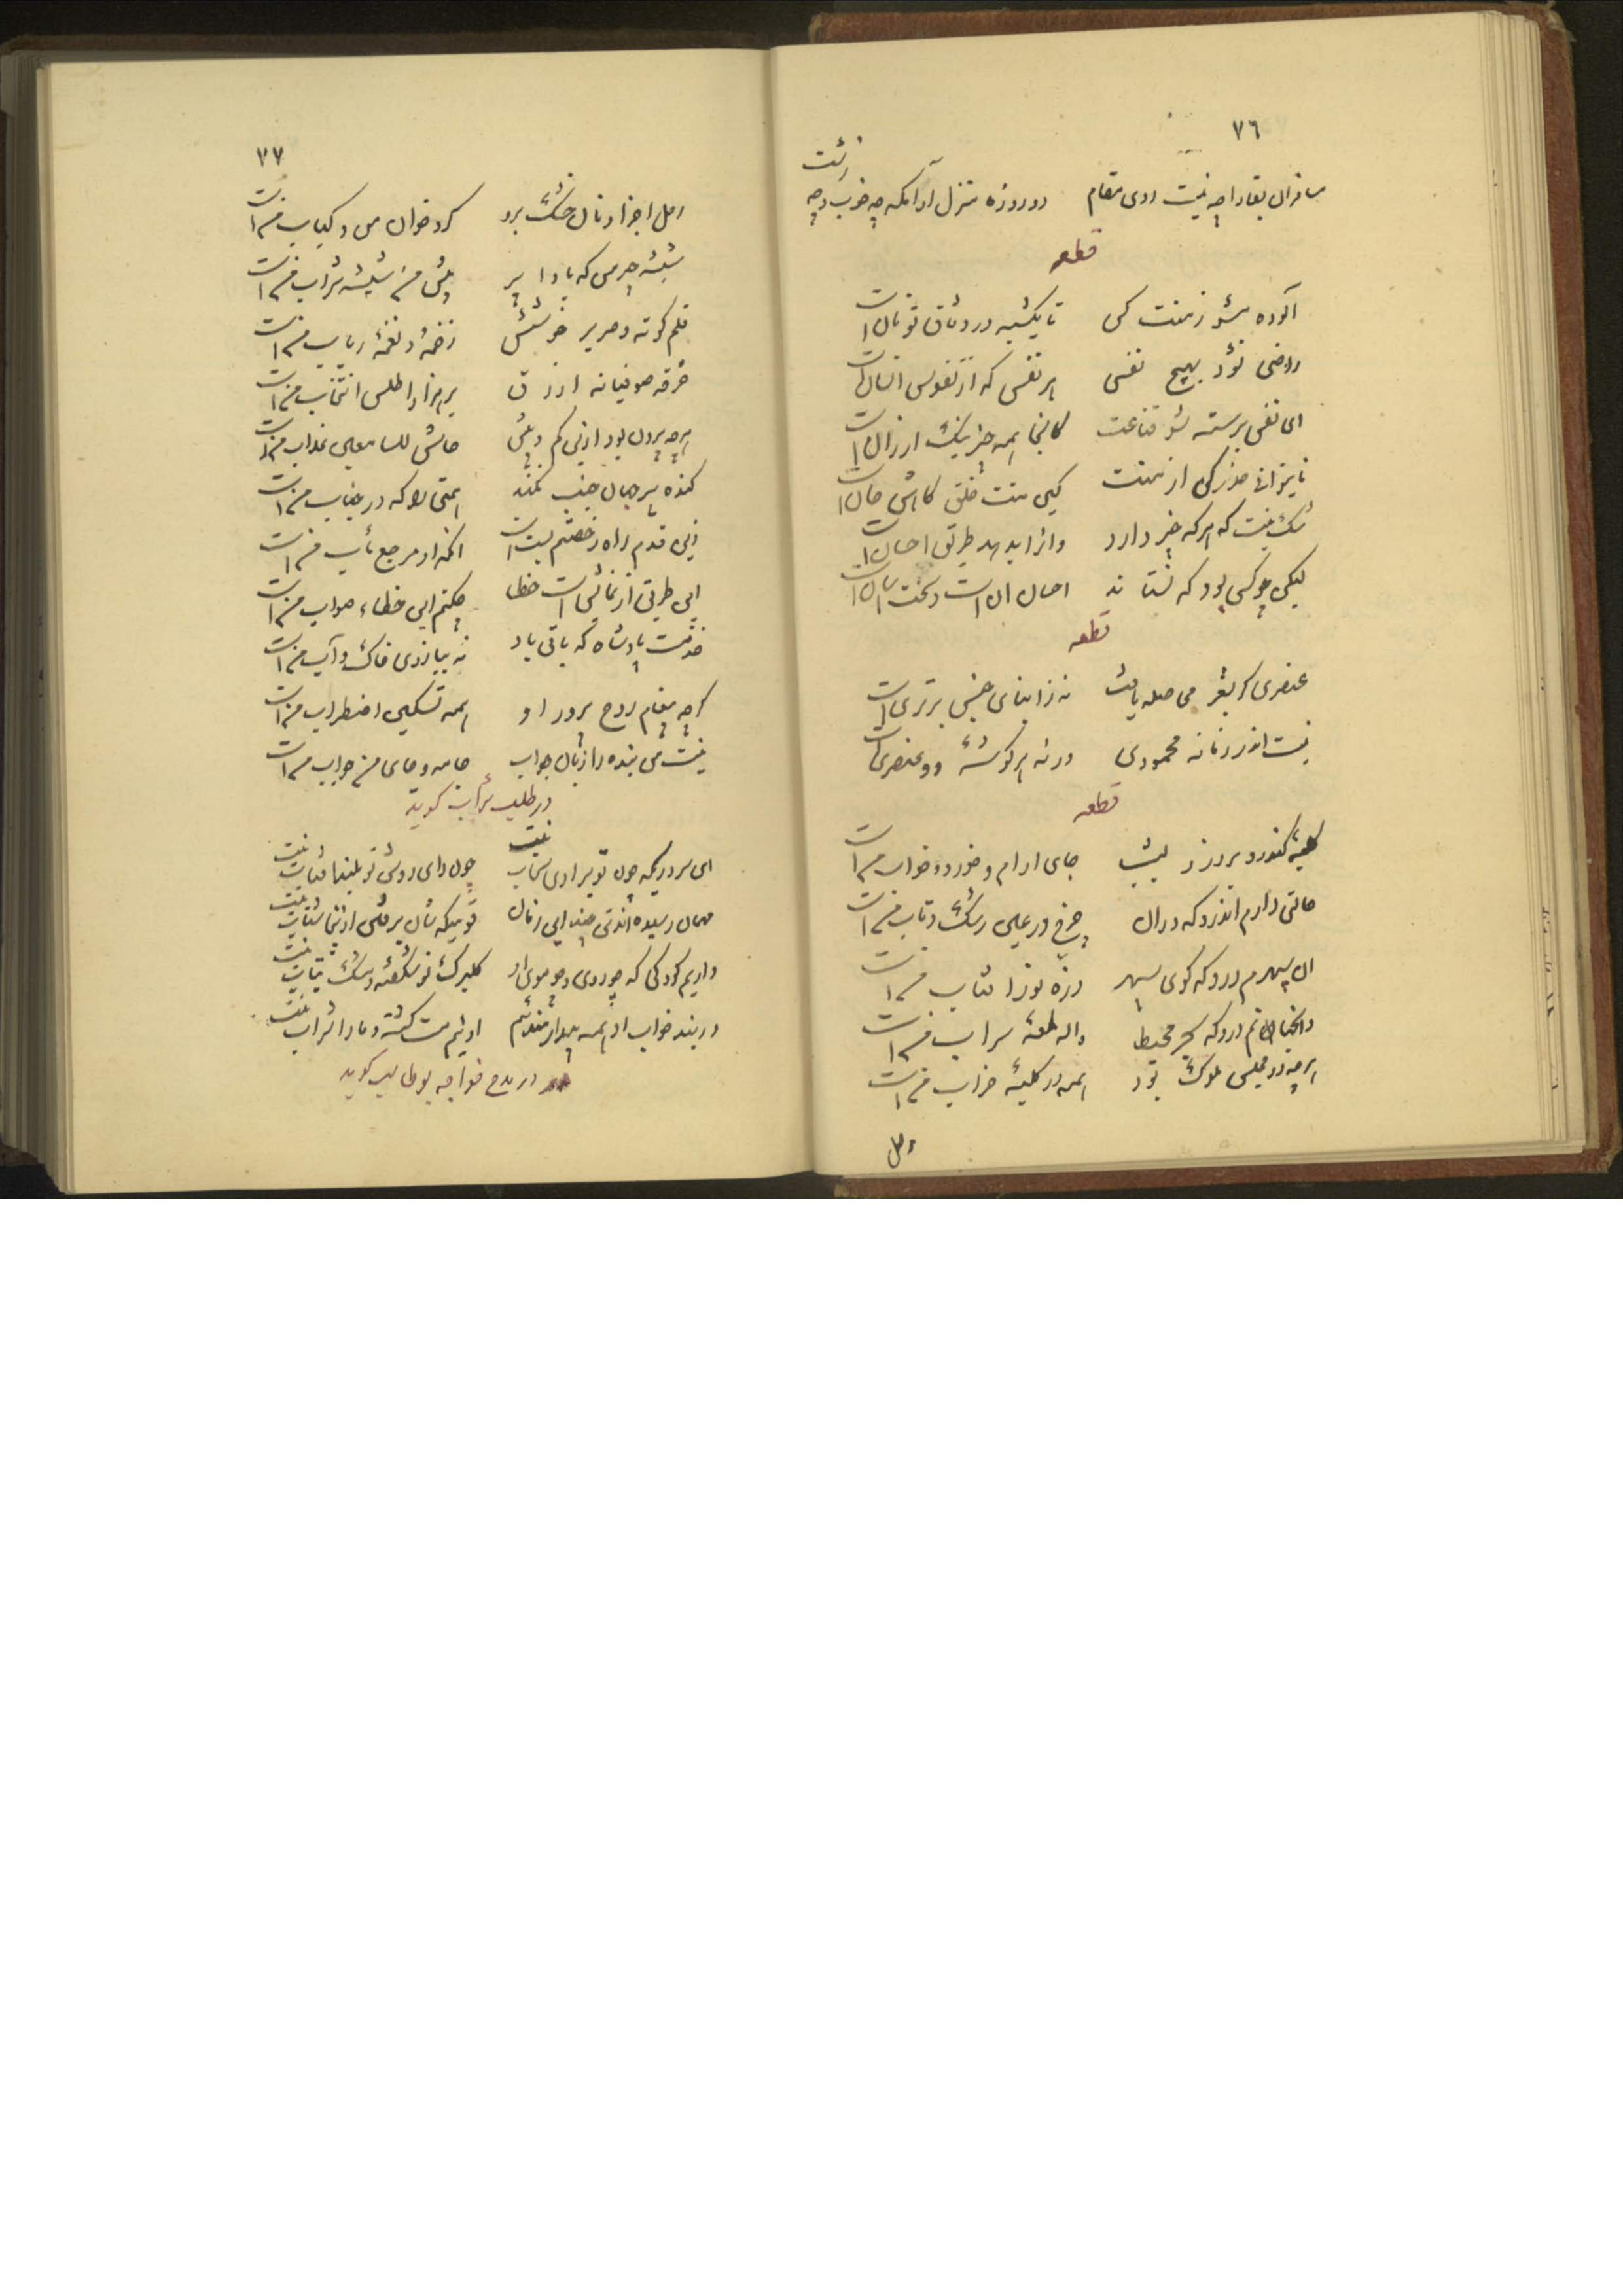 ٧٦
مسافران بقا را چه نیست روی مقام دو روزه منزل و آرامگه چه خوب و چه زشت
قطعه
آلوده منت کسان کم شو تا یکشبه در وثاق تو نان است
راضی نشود بهیچ نفسی هر نفس که از نفوس انسان است
ای نفس برسته قناعت شو کانجا همه چیز نیک ارزان است
تا بتوانی حذر کن از منت کین منت خلق کاهش جان است
شک نیست که هر که چیز دارد و انرا بدهد طریق احسان است
لیکن چو کسی بود که نستاند احسان آن است و سخت آسان است
قطعه
عنصری گر بشعر می صله یافت نه ز ابنای جنس برتری است
نیست اندر زمانه محمودی ورنه هر گوشه دو عنصری است
قطعه
کلبه کاندرو بروز و بشب جای آرام و خورد و خواب من است
حالتی دارم اندرو که در آن چرخ در عین رشک و تاب من است
آن سپهرم درو که گوی سپهر ذره نور آفتاب من است
وان جهانم درو که بحر محیط واله لمعه سراب من است
هرچه در مجلس ملوک بود همه در کلبه خراب من است
رحل
٧٧
رحل اجزا و نان خشک برو گرد خوان من و کباب من است
شیشه حبر من که بادا پر پیش من شیشه شراب من است
قلم کوته و صریر خوشش زخمه و نغمه رباب من است
خرقه صوفیانه ازرق بر هزار اطلس انتخاب من است
هرچه بیرون بود ازین کم و بیش حاش للسامعین عذاب من است
گنده پیر جهان جنب نکند همتی را که در جناب من است
زین قدم راه رجعتم بسته است آنکه او مرجع مآب من است
این طریق از نمایش است خطا چکنم این خطاء صواب من است
خدمت پادشاه که باقی باد نه ببازوی خاک و آب من است
گرچه پیغام روح پرور او همه تسکین اضطراب من است
نیست من بنده را زبان جواب جامه و جای من جواب من است
در طلب شراب گوید
ای سروری که چون تو برادی سحاب نیست چون رای روشن تو بلند آفتاب نیست
مهمان رسیده اند تنی چند این زمان
داریم کودکی که چو روی و چو موی او گلبرگ نو شگفته و مشک بتاب نیست
در بند خواب او همه بیدار مانده ایم او نیم مست گشته و ما را شراب نیست
در مدح خواجه بوطالب گوید